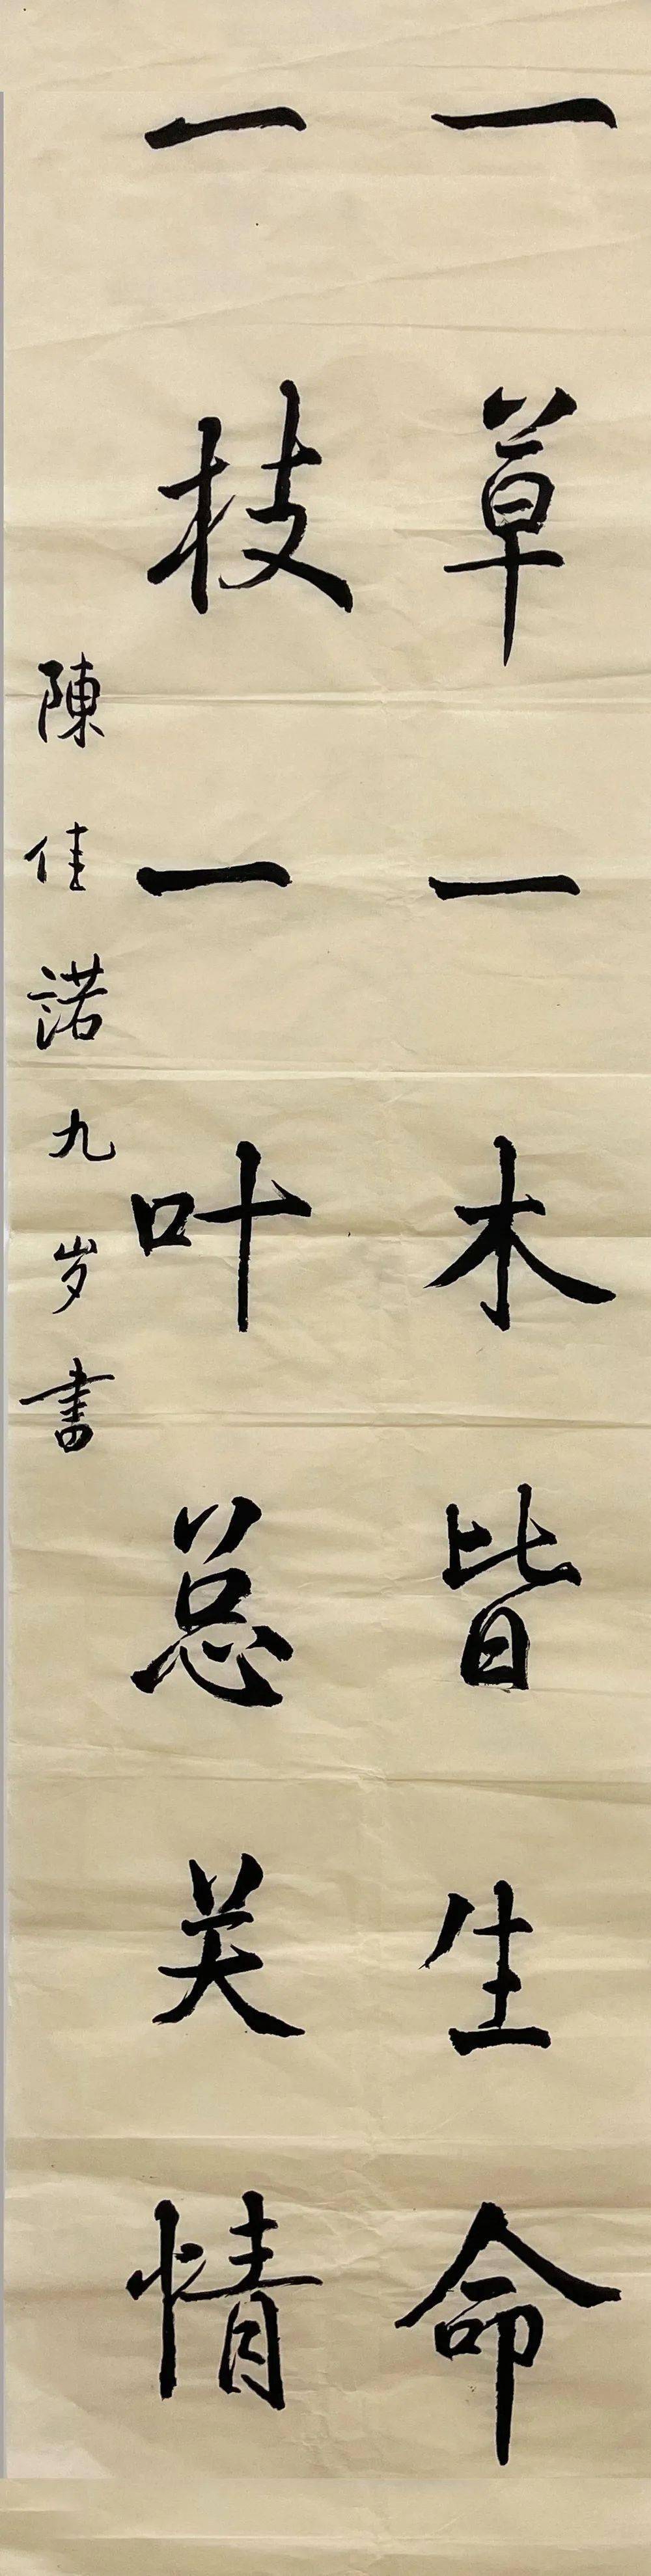 一草一木皆生命
一枝一叶总关情
陳佳諾九岁書